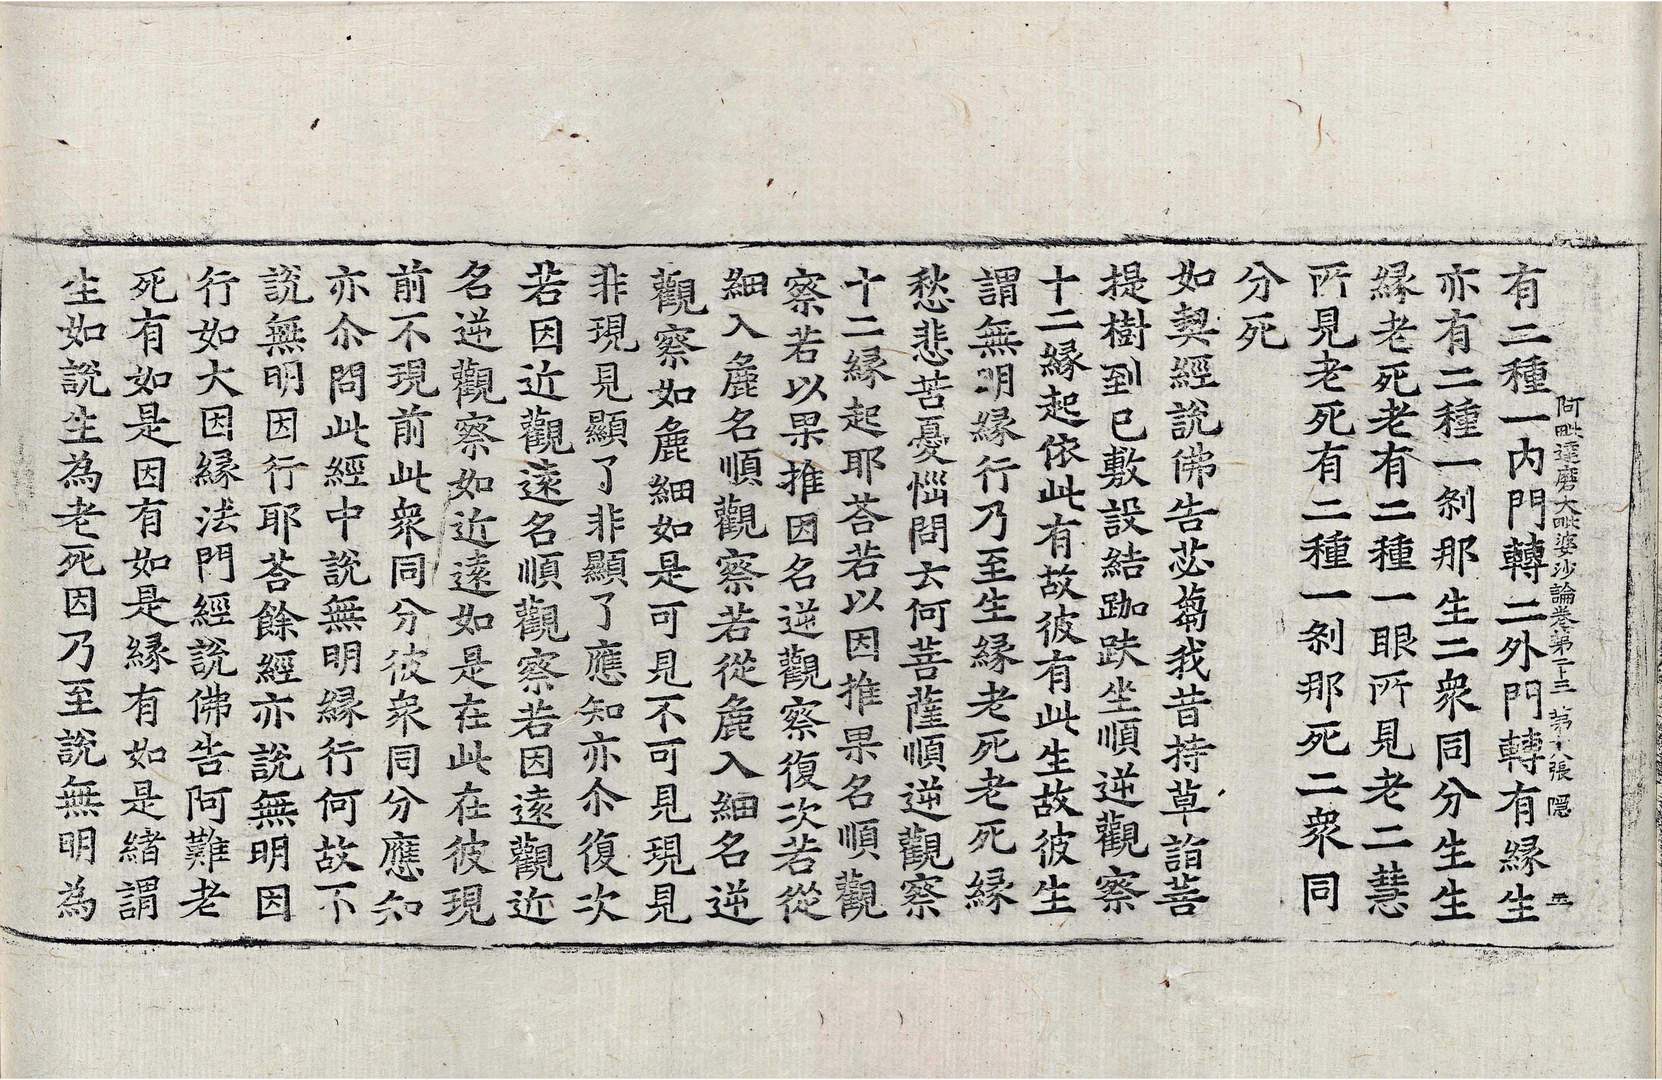 阿毗達磨大毗婆沙論卷第二十三　第十八張　隱
有二種一內門轉二外門轉有緣生
亦有二種一剎那生二衆同分生生
緣老死老有二種一眼所見老二慧
所見老死有二種一剎那死二衆同
分死
如契經說佛告苾蒭我昔持草詣菩
提樹到已敷設結跏趺坐順逆觀察
十二緣起依此有故彼有此生故彼生
謂無明緣行乃至生緣老死老死緣
愁悲苦憂惱問云何菩薩順逆觀察
十二緣起耶荅若以因推果名順觀
察若以果推因名逆觀察復次若從
細入麁名順觀察若從麁入細名逆
觀察如麁細如是可見不可見現見
非現見顯了非顯了應知亦尒復次
若因近觀遠名順觀察若因遠觀近
名逆觀察如近遠如是在此在彼現
前不現前此衆同分彼衆同分應知
亦尒問此經中說無明緣行何故不
說無明因行耶荅餘經亦說無明因
行如大因緣法門經說佛告阿難老
死有如是因有如是緣有如是緖謂
生如說生爲老死因乃至說無明爲